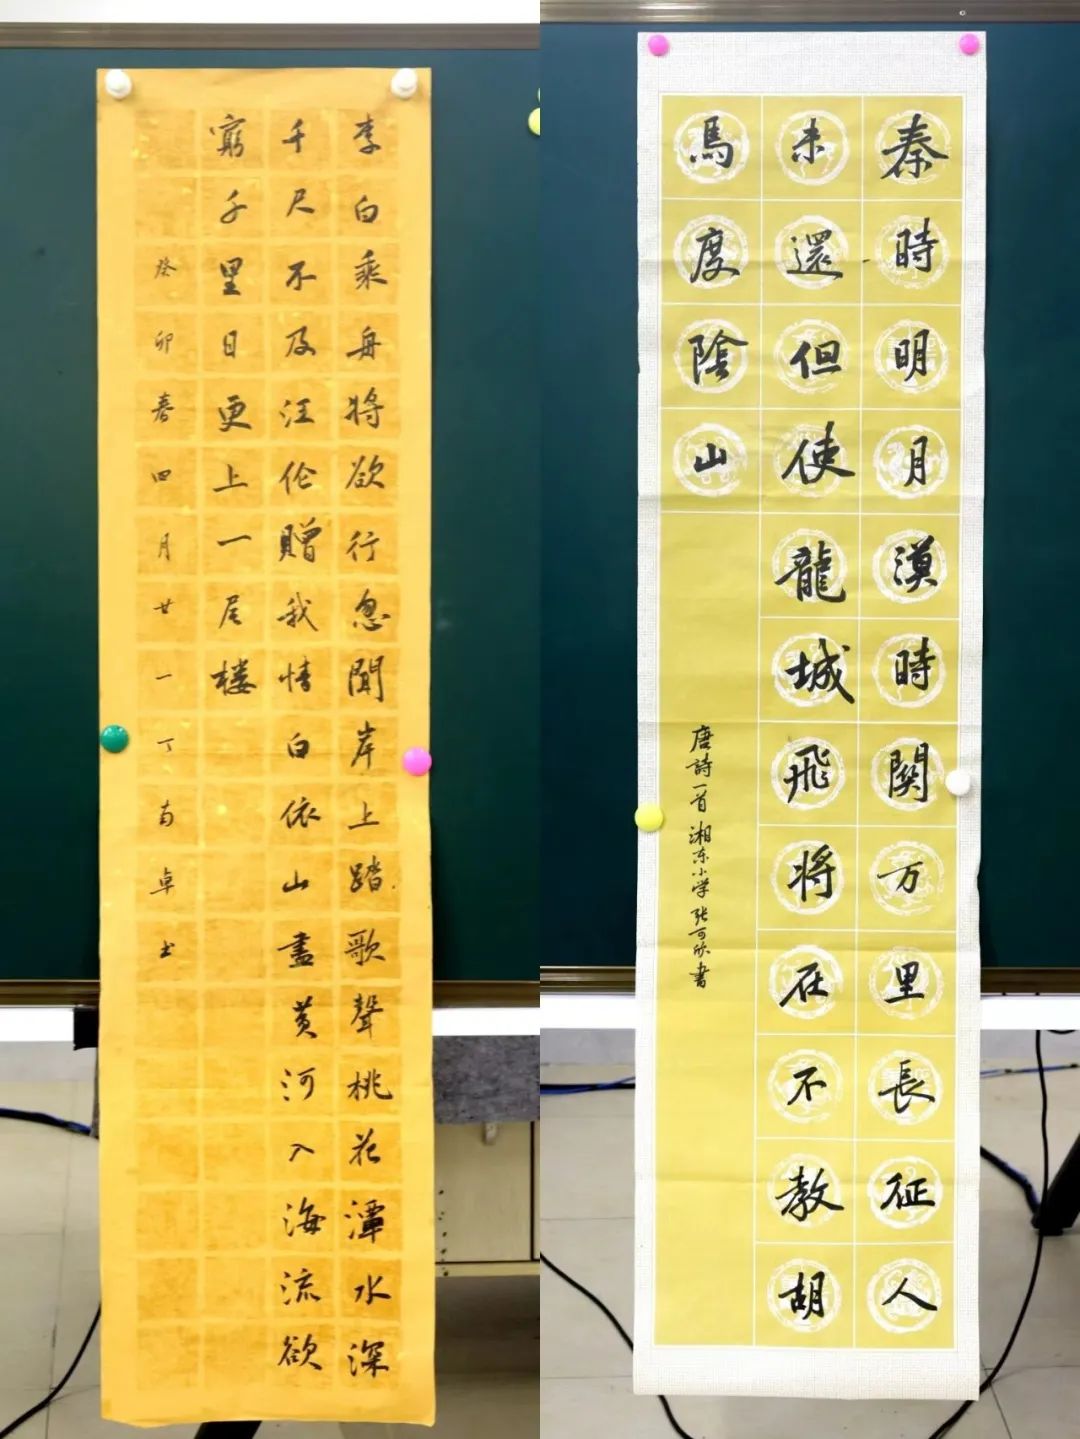 李白乘舟将欲行忽聞岸上踏歌聲桃花潭水深
千尺不及汪伦贈我情白依山盡黄河入海流欲
窮千里日更上一层楼
癸卯春四月廿一丁南卓书
秦時明月漢時関万里長征人
未還但使龍城飛将在不教胡
馬度陰山
唐詩一首 湘东小学 张可欣書